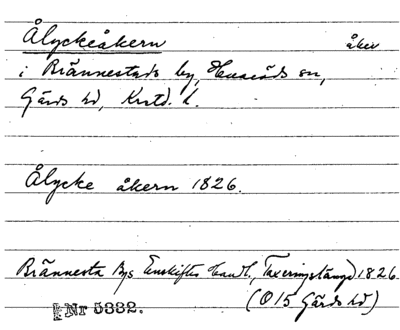 Ålyckeåkern åker
i Brännestads by, Huaröds sn,
Gärds hd, Krstd. l.
Ålycke åkern 1826.
Brännesta Bys Enskiftes Handl., Taxeringslängd 1826.
Nr 5332. (O15 Gärds hd)